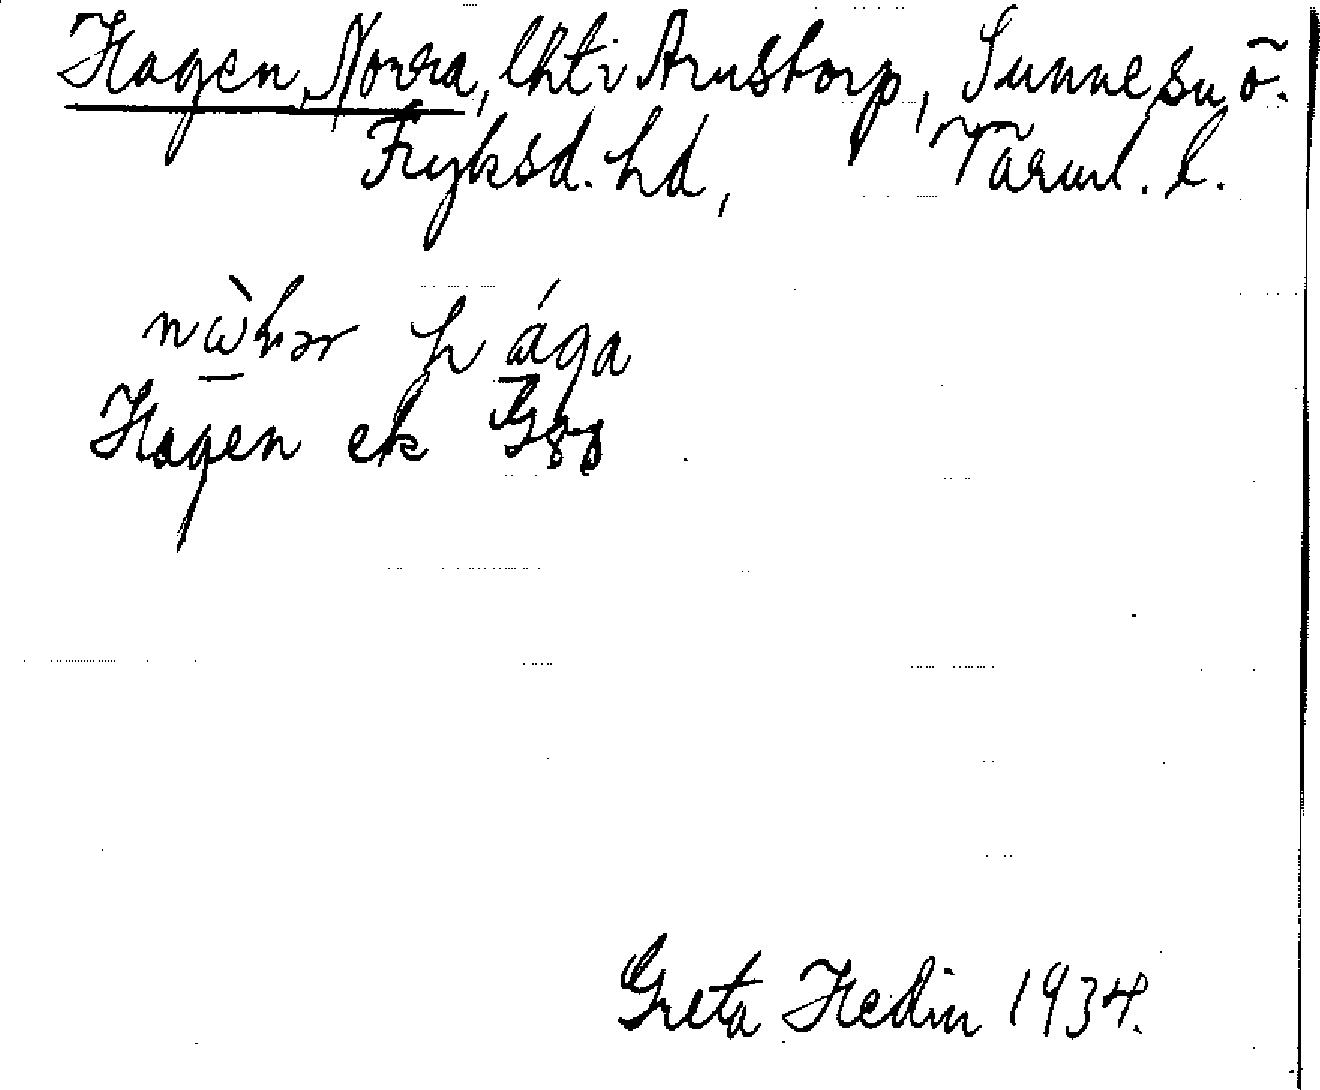 Hagen, Norra, lht i Arnstorp, Sunne sn ö.
Fryksd. hd, Värml. l.
h ága
Hagen ek
Greta Hedin 1934.